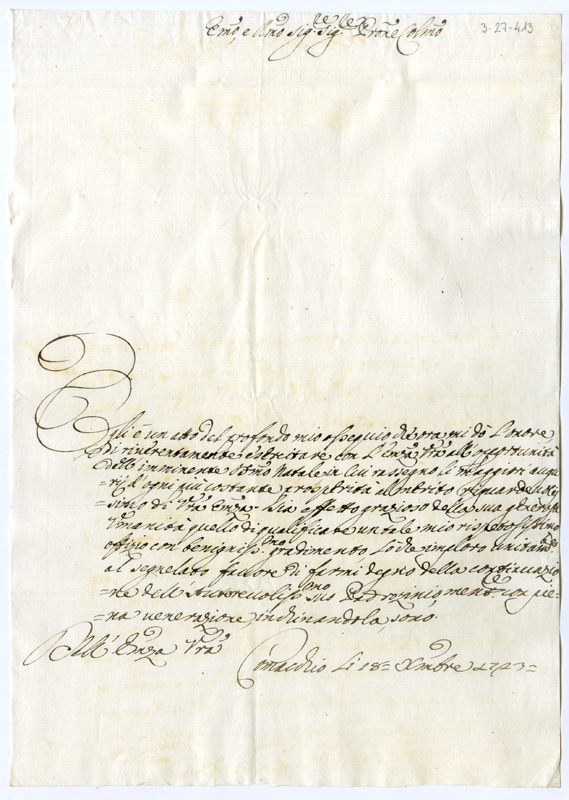 Emo, e Rmo Sig.re Sig.re Prone Colmo
3-27-413
Egli è un atto del profondo mio ossequio che ora mi dò l'onore
di riverentemente esercitare con l'Emza Vrà all'opportunità
dell'imminente SSmo Natale in cui rassegno li maggiori augu-
=rij d'ogni più costante prosperità al merito riguardevolis-
simo di Vrà Emza. Sia effetto grazioso della sua generosa
Umanità quello di qualificare un tale mio rispetosissimo
offizio con benigniss.mo gradimento che imploro unitam.te
al segnalato favore di farmi degno della continuazio-
=ne dell'Autorevoliss.mo suo Padrozinio, mentre con pie-
=na venerazione inchinandola, sono.
Dell'Emza Vrà
Comacchio li 18= Xmbre 1723=